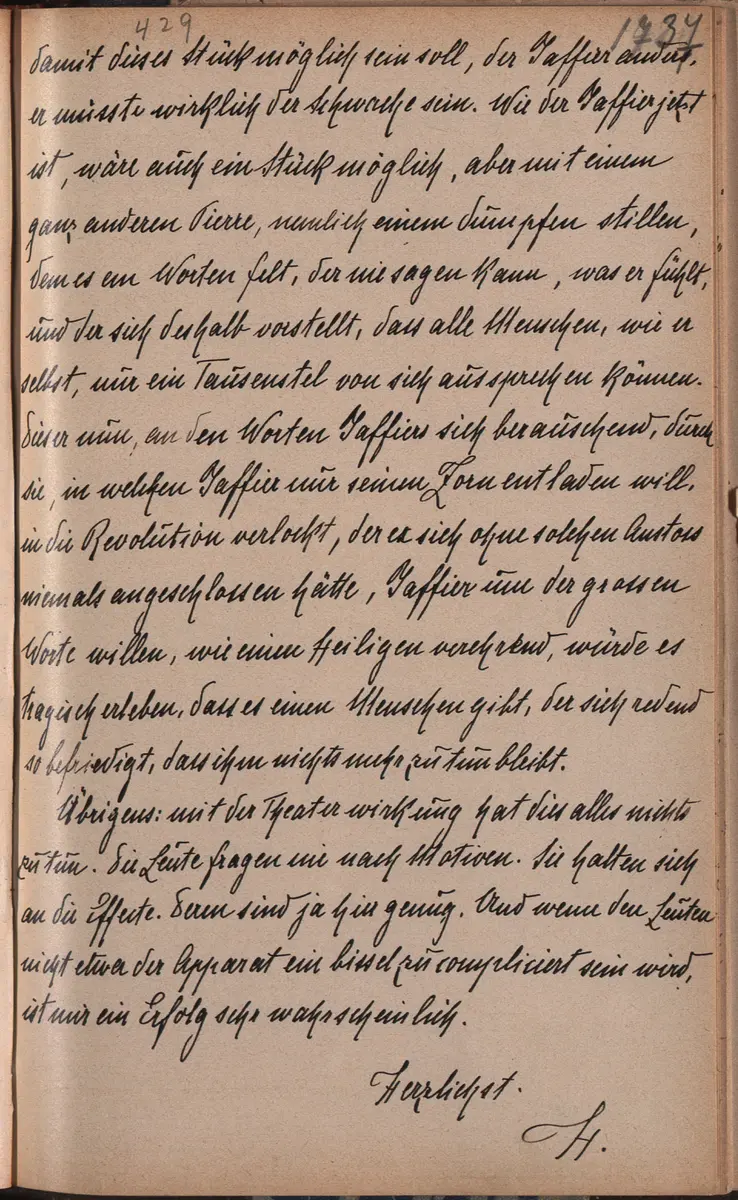 429
1737
damit dieses Stück möglich sein soll, der Jaffier anders,
er müsste wirklich der Schwache sein. Wie der Jaffier jetzt
ist, wäre auch ein Stück möglich, aber mit einem
ganz anderen Pierre, nemlich einem dumpfen stillen,
dem es an Worten felt, der nie sagen kann, was er fühlt,
und der sich deshalb vorstellt, dass alle Menschen, wie er
selbst, nur ein Tausenstel von sich aussprechen können.
Dieser nun, an den Worten Jaffiers sich berauschend, durch
sie, in welchen Jaffier nur seinen Zorn entladen will,
in die Revolution verlockt, der er sich ohne solchen Anstoss
niemals angeschlossen hätte, Jaffier um der grossen
Worte willen, wie einen Heiligen verehrend, würde es
tragisch erleben, dass es einen Menschen gibt, der sich redend
so befriedigt, dass ihm nichts mehr zu tun bleibt.
Übrigens: mit der Theaterwirkung hat dies alles nichts
zu tun. Die Leute fragen nie nach Motiven. Sie halten sich
an die Effecte. Deren sind ja hier genug. Und wenn den Leuten
nicht etwa der Apparat ein bissel zu compliciert sein wird,
ist mir ein Erfolg sehr wahrscheinlich.
Herzlichst.
H.